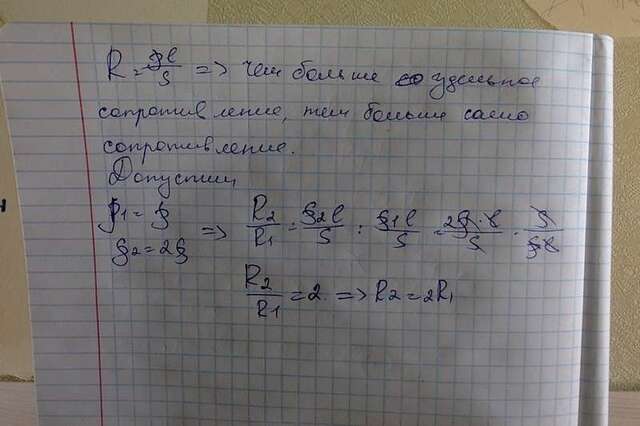 R = ρl/S => чем больше удельное
сопротивление, тем больше само
сопротивление.
Допустим,
ρ1 = ρ
ρ2 = 2ρ => R2/R1 = ρ2l/S : ρ1l/S = 2ρ·l/S · S/ρl
R2/R1 = 2 => R2 = 2R1